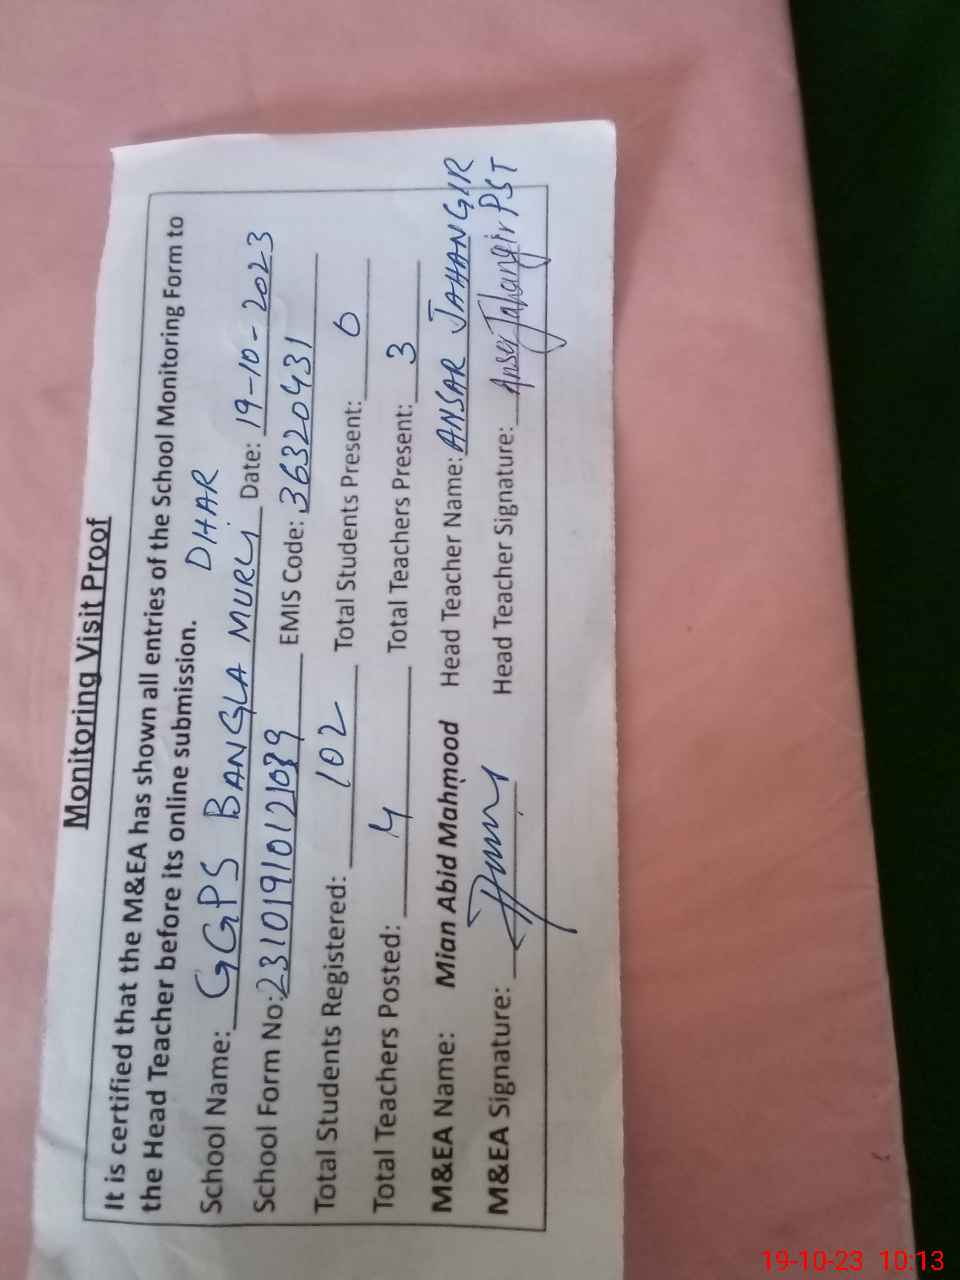 Monitoring Visit Proof
It is certified that the M&EA has shown all entries of the School Monitoring Form to
the Head Teacher before its online submission.
DHAR
School Name: GGPS BANGLA MURLI Date: 19-10-2023
School Form No: 2310191012039 EMIS Code: 36320431
Total Students Registered: 102 Total Students Present: 0
Total Teachers Posted: 4 Total Teachers Present: 3
M&EA Name: Mian Abid Mahmood Head Teacher Name: ANSAR JAHANGIR
M&EA Signature: Head Teacher Signature: Anser Jahangir PST
19-10-23 10:13